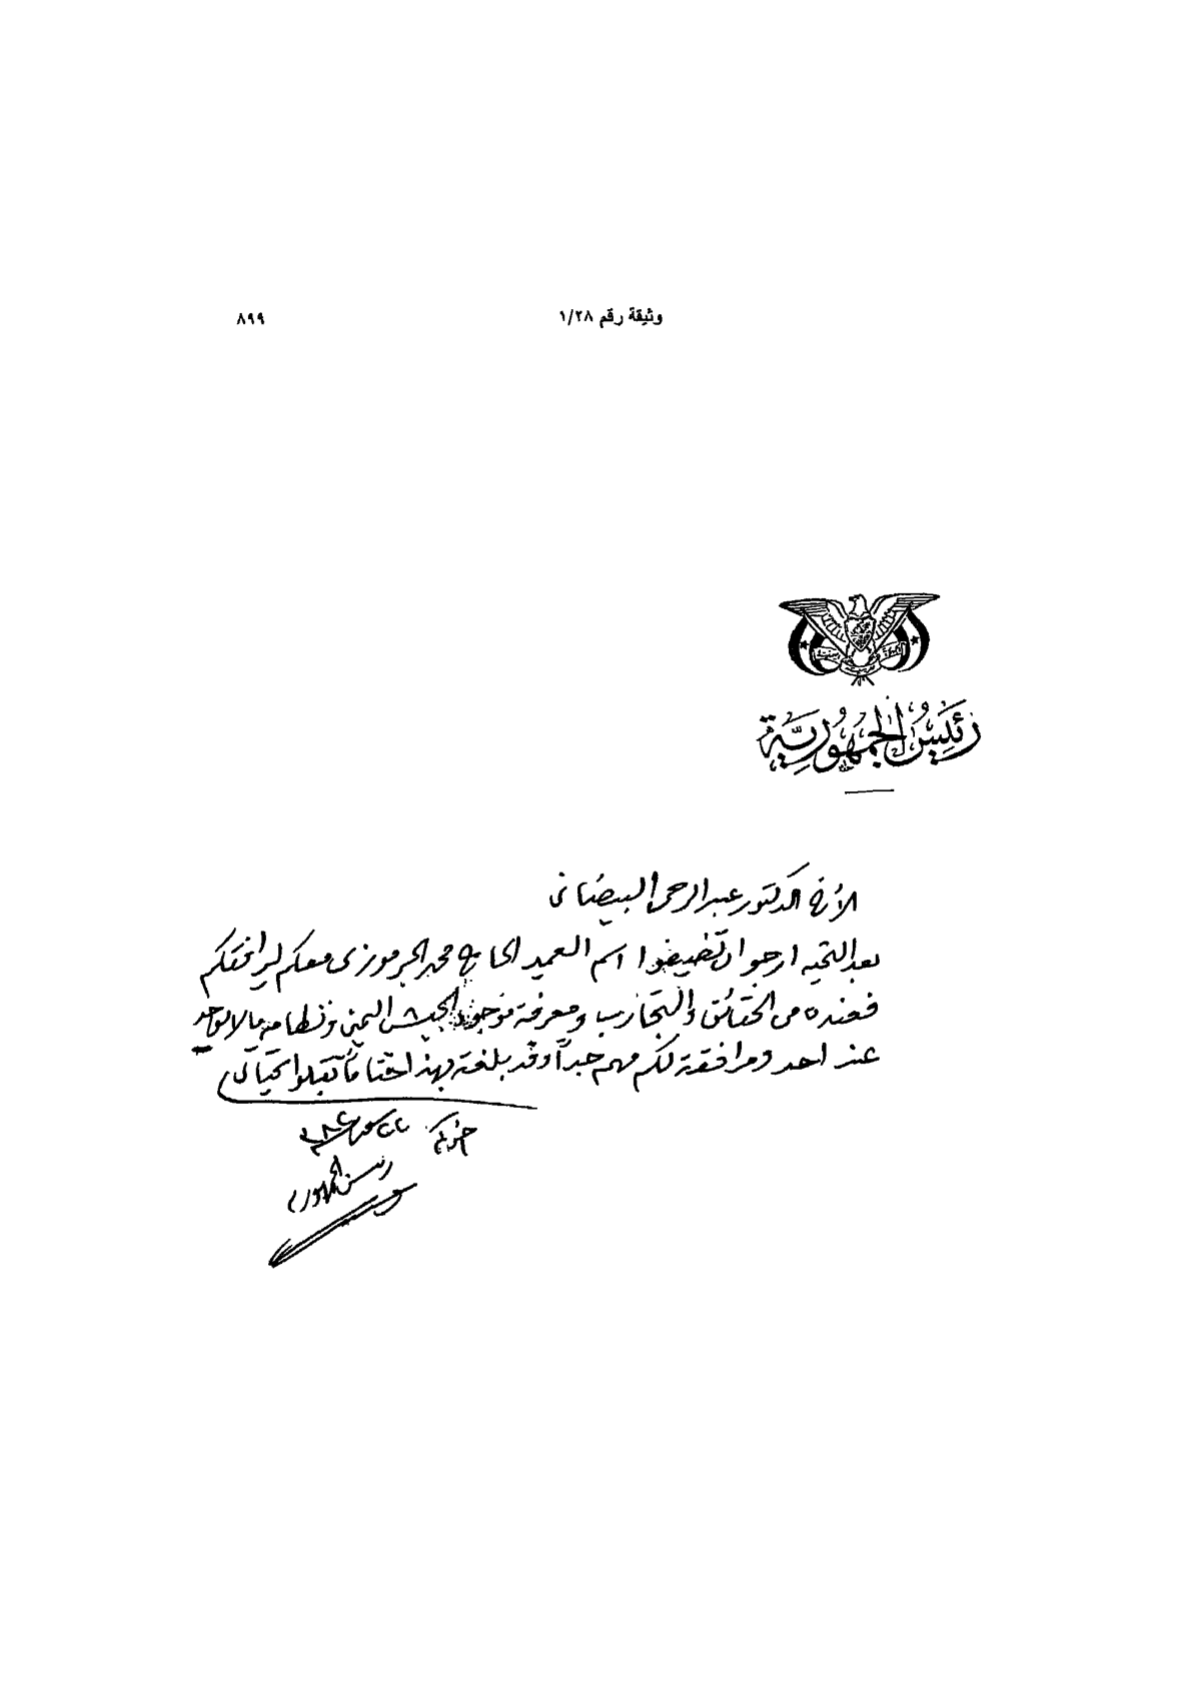 وثيقة رقم ١/٢٨
٨٩٩
رئيس الجمهورية
الأخ الدكتور عبدالرحمن البيضاني
بعد التحيه ارجوا ان تضيفوا اسم العميد الحاج محمد الجرموزي معكم ليرافقكم
فعنده من الحقائق والتجارب ومعرفة الجيش اليمني ونظامه مالا يوجد
عند احد ومرافقته لكم مهم جداً وقد بلغته بهذا ختاماً تقبلوا تحياتي
اخوكم
رئيس الجمهورية